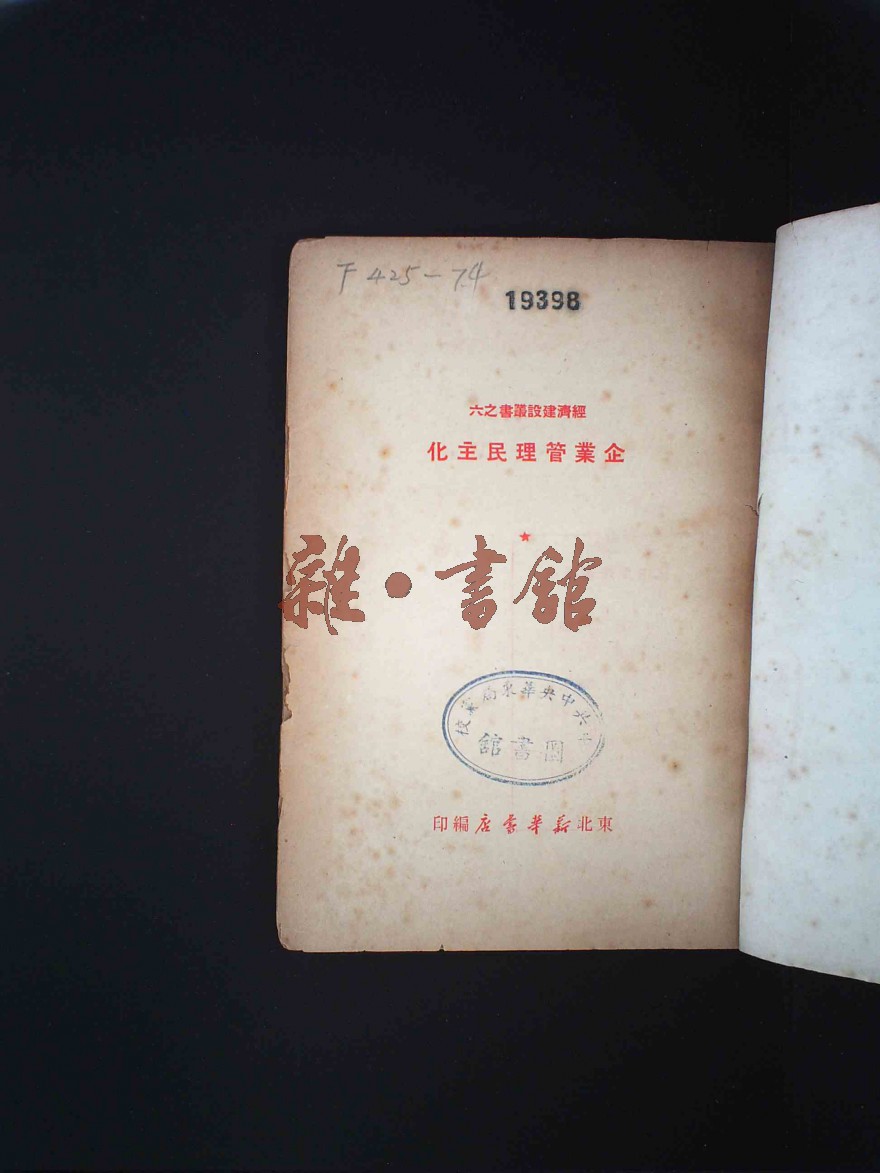 F 425-74
19398
經濟建設叢書之六
企業管理民主化
★
雜·書館
中共中央華東局黨校
圖書館
東北新華書店編印